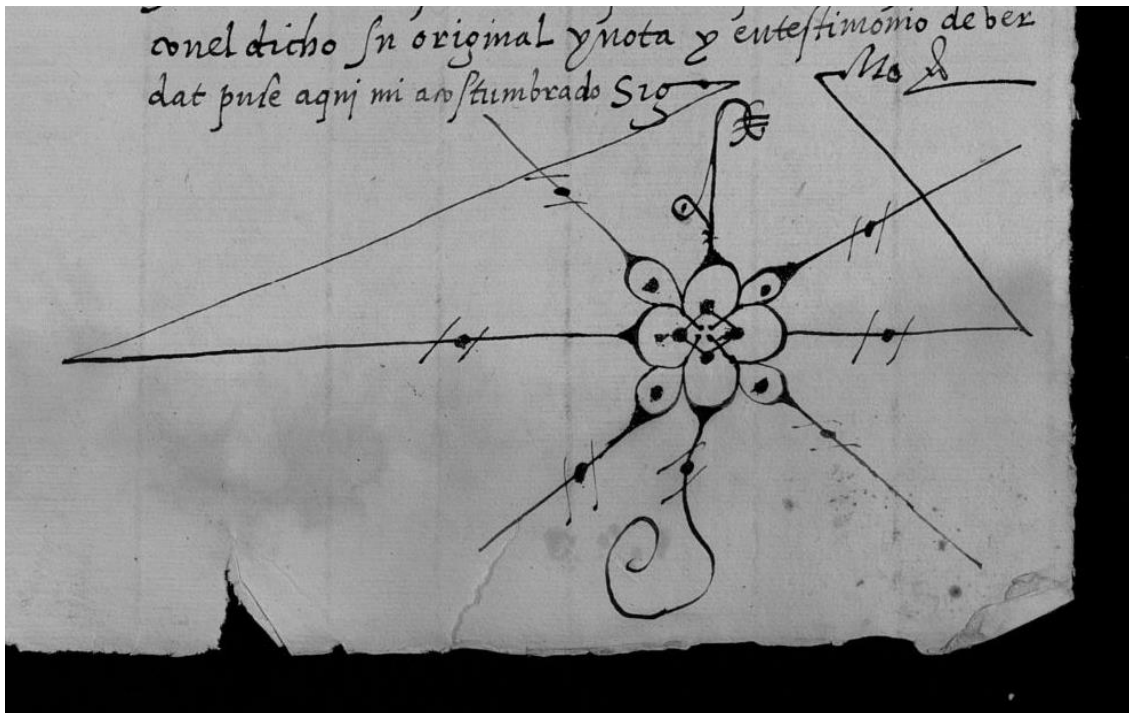 conel dicho su original y nota y entestimonio de ver
dat puse aqui mi acostumbrado Sig no